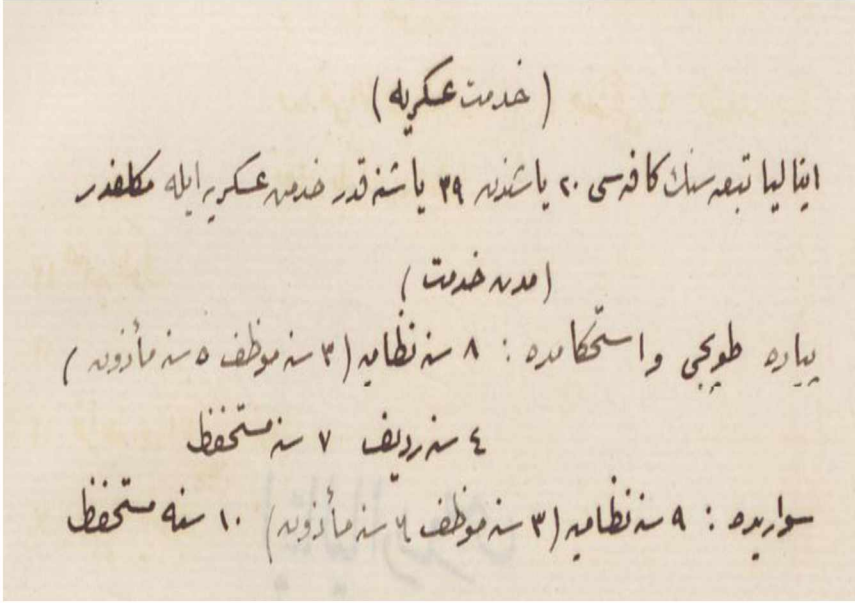 (خدمت عسكريه)
ايتاليا تبعه سنك كافه سى ٢٠ ياشندن ٣٩ ياشنه قدر خدمت عسكريه ايله مكلفدر
(مدت خدمت)
پياده طوپجى واستحكامده : ٨ سنه نظاميه (٣ سنه موظف ٥ سنه مأذون)
٤ سنه رديف ٧ سنه مستحفظ
سواريده : ٩ سنه نظاميه (٣ سنه موظف ٦ سنه مأذون) ١٠ سنه مستحفظ